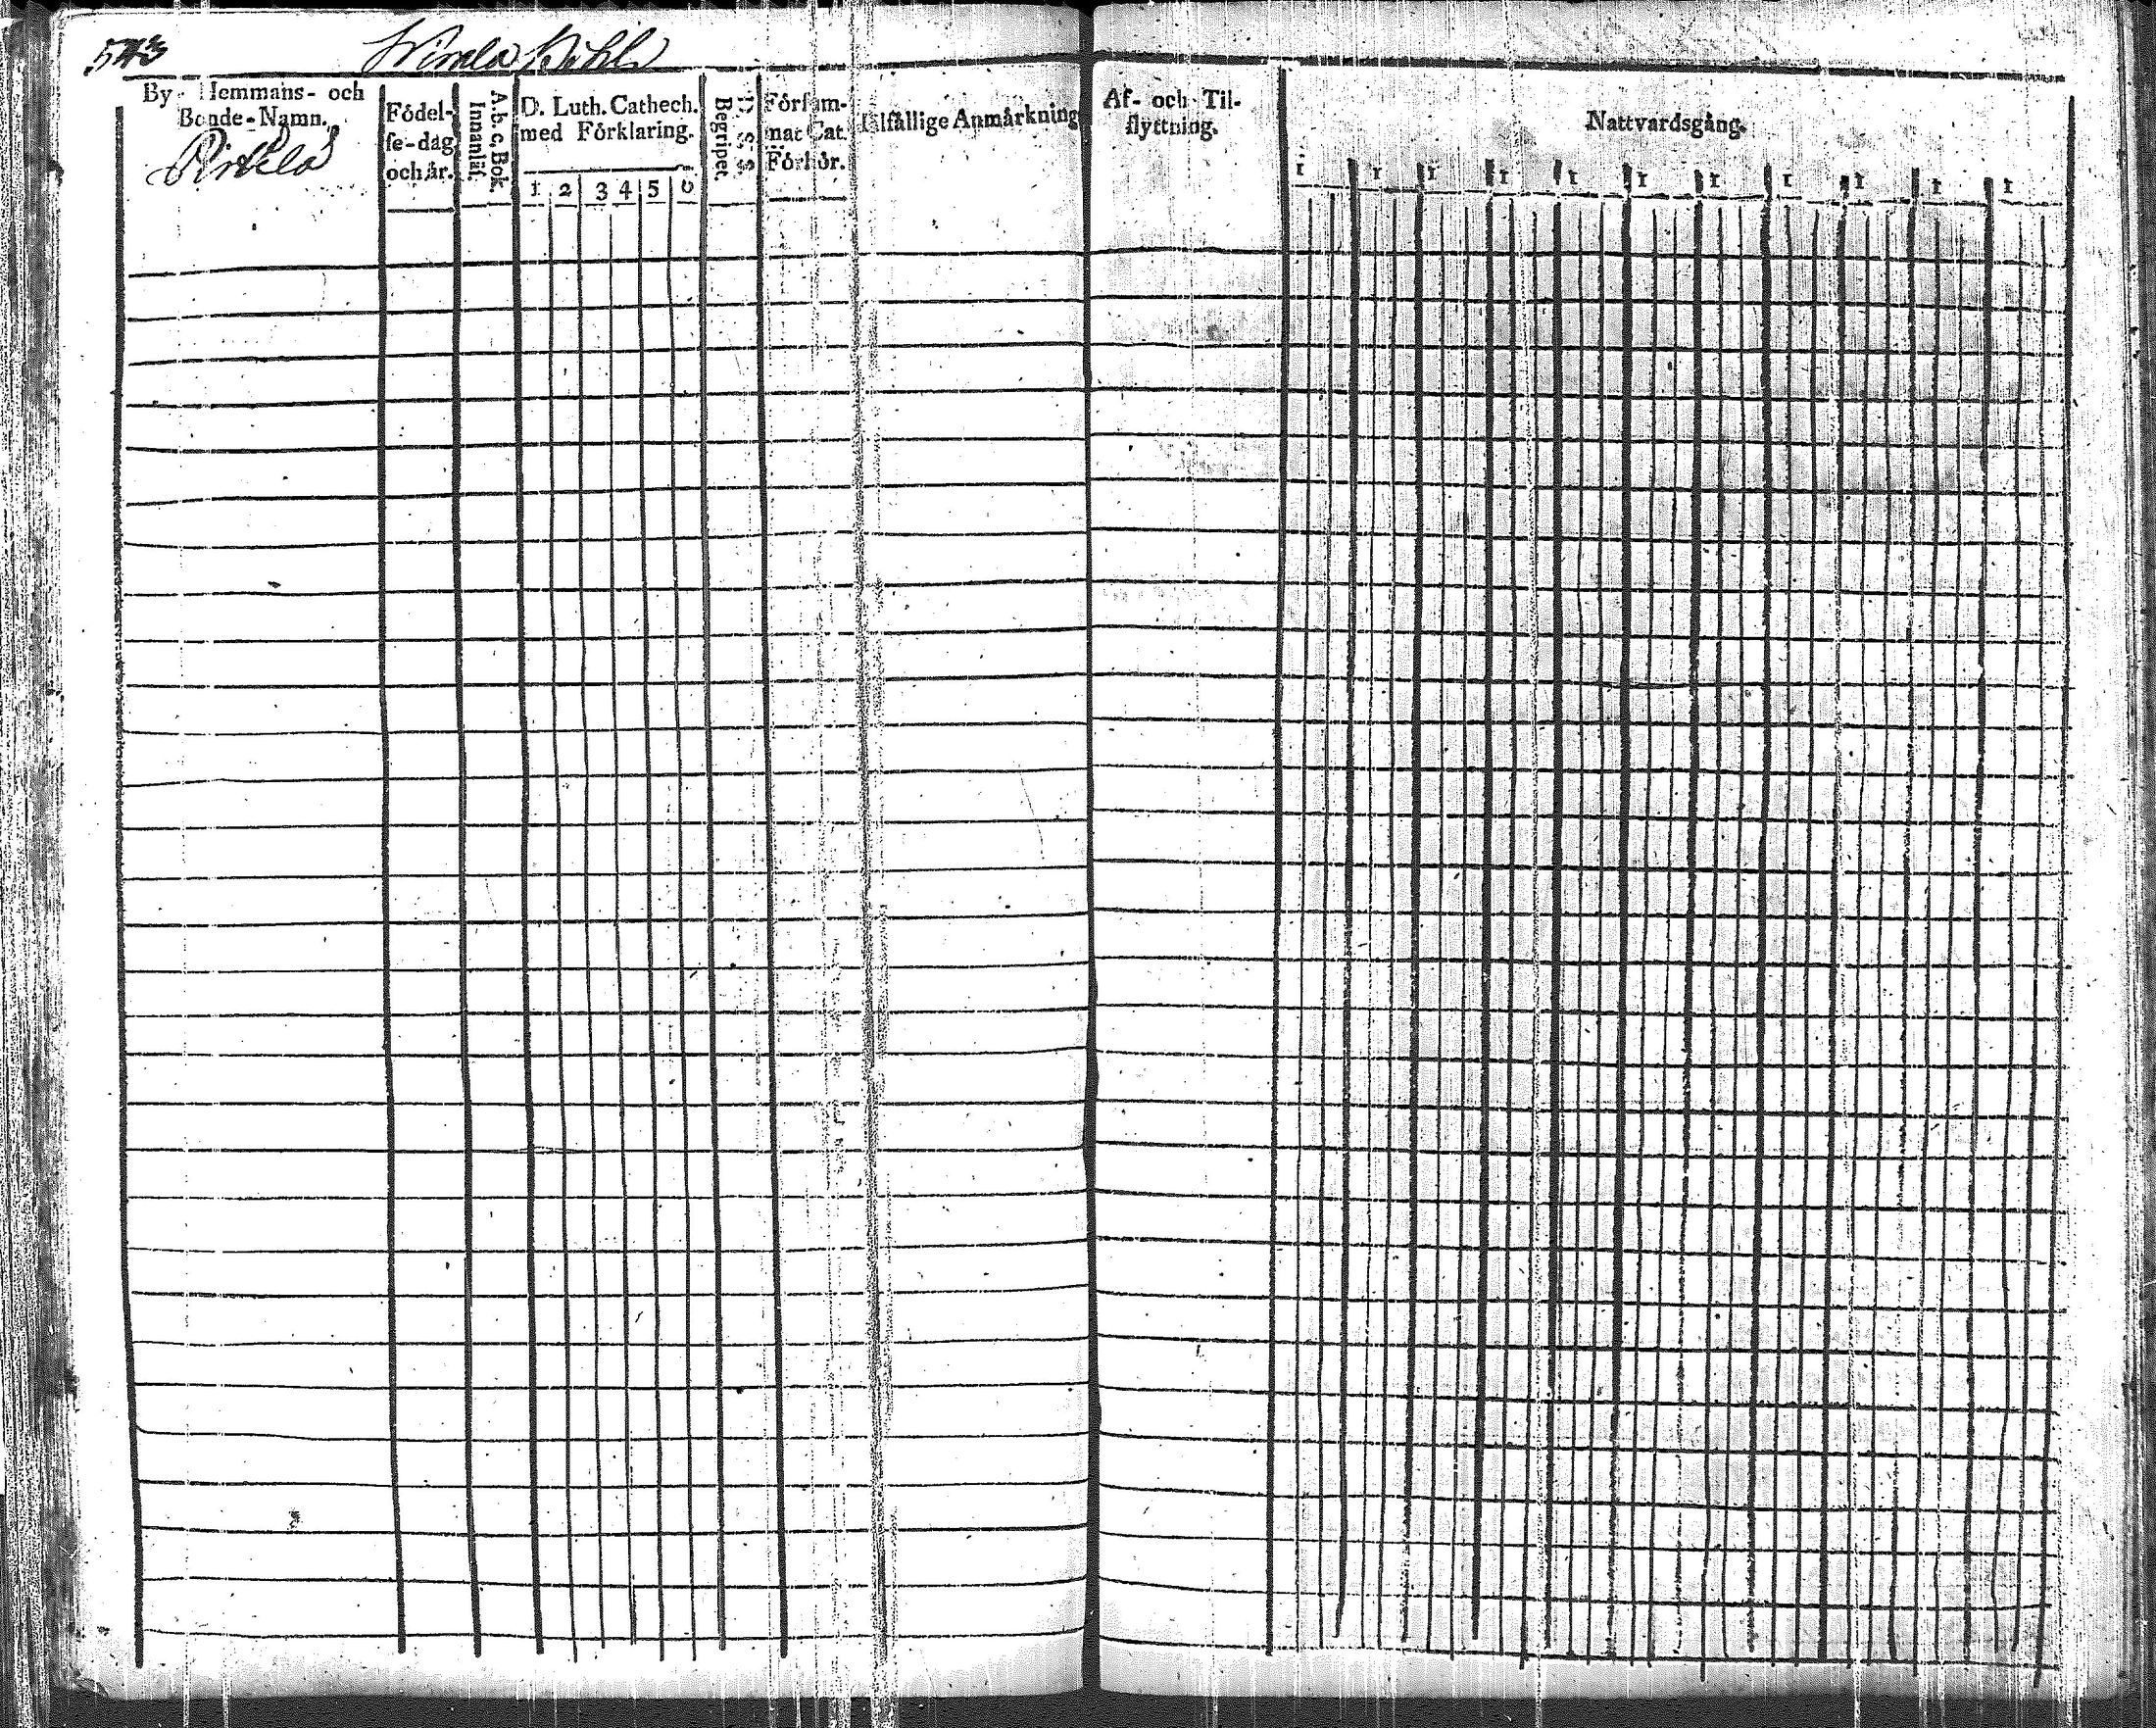 543
By- Hemmans- och
Bonde-Namn.
Födel-
se-dag
och år.
A. b. c, Bok.
Innanläs.
D. Luth. Cathech.
med Förklaring.
1 2 3 4 5 6
Begripet.
Försum-
mat Cat.
Förhör.
Tilfällige Anmärkning
Af- och Til-
flyttning.
Nattvardsgång.
1 1 1 1 1 1 1 1 1 1 1